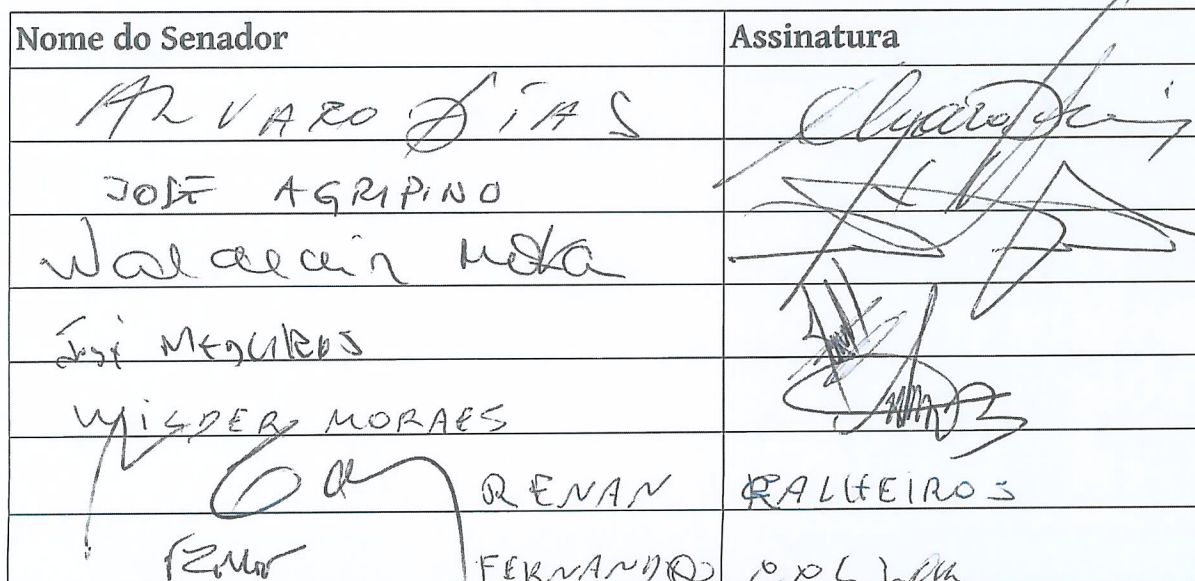 Nome do Senador Assinatura
ALVARO DIAS Alvaro Dias
JOSÉ AGRIPINO
Waldemir Moka
José MEDEIROS
WILDER MORAES
RENAN CALHEIROS
FERNANDO COLLOR